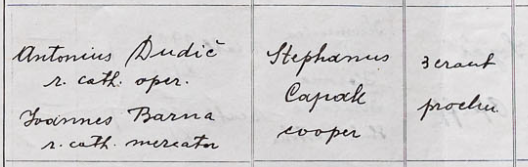 Antonius Dudič
r. cath. oper.
Joannes Barna
r. cath. mercator
Stephanus
Capak
cooper
3 eraut